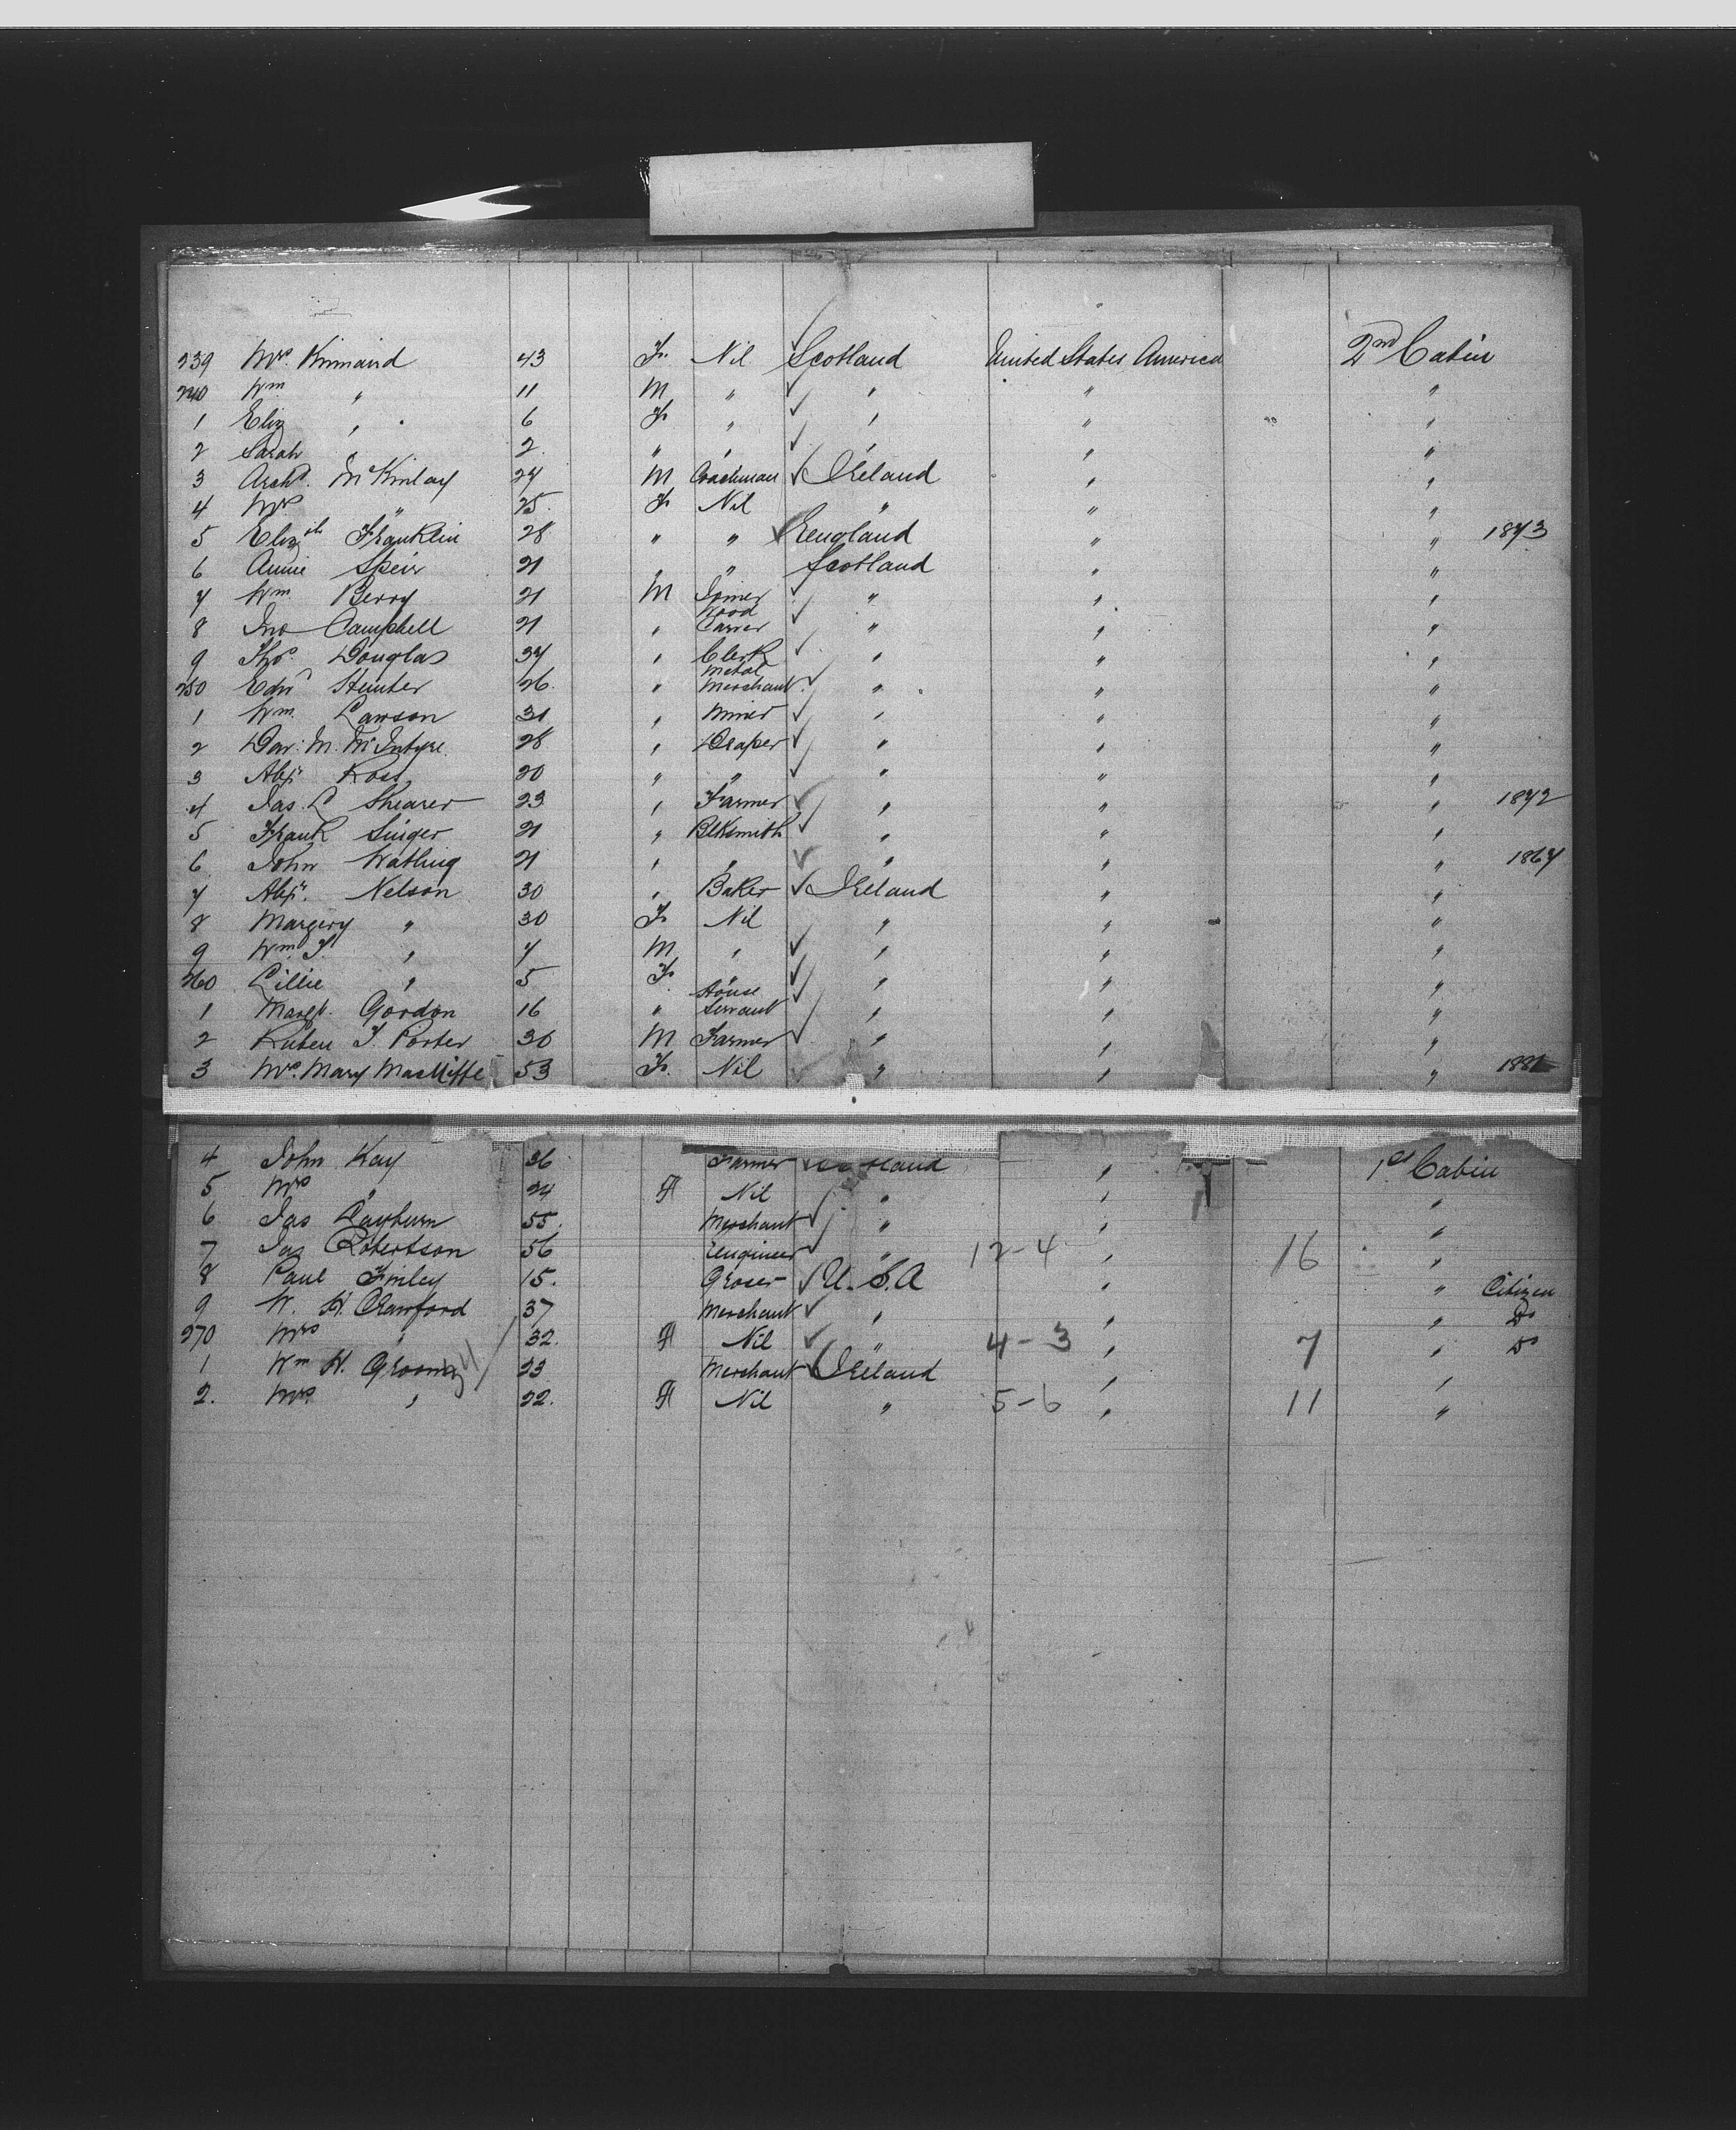 239 Mrs. Kinnaird 43 F. Nil Scotland United States America 2nd Cabin
240 Wm " 11 M " " " "
1 Eliz " 6 F " " " "
2 Sarah " 2 " " " " "
3 Archd. McKinlay 27 M Coachman Ireland " "
4 Mrs " 25. F Nil " " "
5 Elizth Franklin 28 " " England " " 1873
6 Annie Speir 21 " " Scotland " "
7 Wm Berry 21 M Joiner " " "
8 Jno Campbell 21 " Wood Carver " " "
9 Thos. Douglas 37 " Clerk " " "
250 Edwd Hunter 26. " Metal Merchant " " "
1 Wm. Lawson 31 " Miner " " "
2 Dav: M. McIntyre 28 " Draper " " "
3 Alexr Ross 20 " " " " "
4 Jas. L Shearer 23 " Farmer " " " 1872
5 Frank Singer 21 " Blksmith " " "
6 John Watling 21 " " " " " 1867
7 Alexr. Nelson 30 " Baker Ireland " "
8 Margery " 30 F Nil " " "
9 Wm. J. " 7 M " " " "
260 Lillie " 5 F. " " " "
1 Margt. Gordon 16 " House Servant " " "
2 Ruben J. Porter 36 M Farmer " " "
3 Mrs. Mary 53 F. Nil " " " 1881
4 John Kay 36 Farmer " 1st Cabin
5 Mrs " 24 F Nil " " "
6 Jas 55. Merchant " " "
7 Jas Robertson 56 Engineer " 12-4 " 16 "
8 Paul Finley 15. Grocer U.S.A " " Citizen
9 W. H. Crawford 37 Merchant " " " Do
270 Mrs " 32. F Nil " 4-3 " 7 " Do
1 Wm H. 23 Merchant Ireland " "
2. Mrs. " 22. F Nil " 5-6 " 11 "